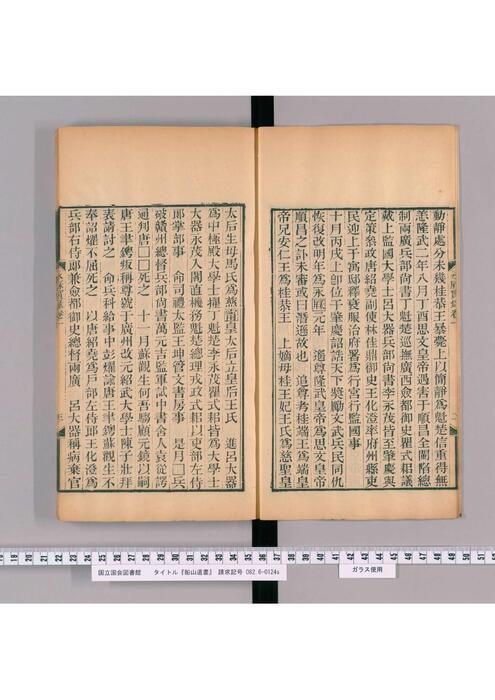 動靜處分未幾桂恭王薨羣上以簡靜爲魁楚信重得無
恙隆武二年八月丁酉思文皇帝遇害于順昌全閩陷總
制兩廣兵部尚書丁魁楚巡撫廣西僉都御史瞿式耜議
戴上監國大學士呂大器兵部尚書李永茂皆至肇慶與
定策翁政唐紹堯副使林佳鼎御史王化澄率府州縣吏
民迎上于寓邸釋衰服治府署爲行宮行監國事
十月丙戌上卽位于肇慶詔誥天下獎勵文武兵民同仇
恢復改明年爲永曆元年　遙尊隆武皇帝爲思文皇帝
順昌之訃未審或曰潛遜故也　追尊考桂端王爲端皇
帝兄安仁王爲桂恭王　上嫡母桂王妃王氏爲慈聖皇
太后生母馬氏爲慈寧皇太后立皇后王氏　進呂大器
爲中極殿大學士擢丁魁楚李永茂瞿式耜皆爲大學士
大器永茂入閣直機務魁楚總理戎政式耜以吏部左侍
郎掌部事　命司禮太監王坤管文書房事　是月□兵
破贛州總督兵部尚書萬元吉監軍試中書舍人袁從諤
通判唐□□死之　十一月蘇觀生何吾騶顧元鏡以嗣
唐王聿鐭叛稱尊號于廣州改元紹武大學士陳子壯拜
表請討之　命兵科給事中彭燿諭唐王聿鐭蘇觀生不
奉詔燿不屈死之　以唐紹堯爲戶部左侍郎王化澄爲
兵部右侍郎兼僉都御史總督兩廣　呂大器稱病棄官
国立国会図書館　タイトル『船山遺書』　請求記号 082.6-0124s
ガラス使用